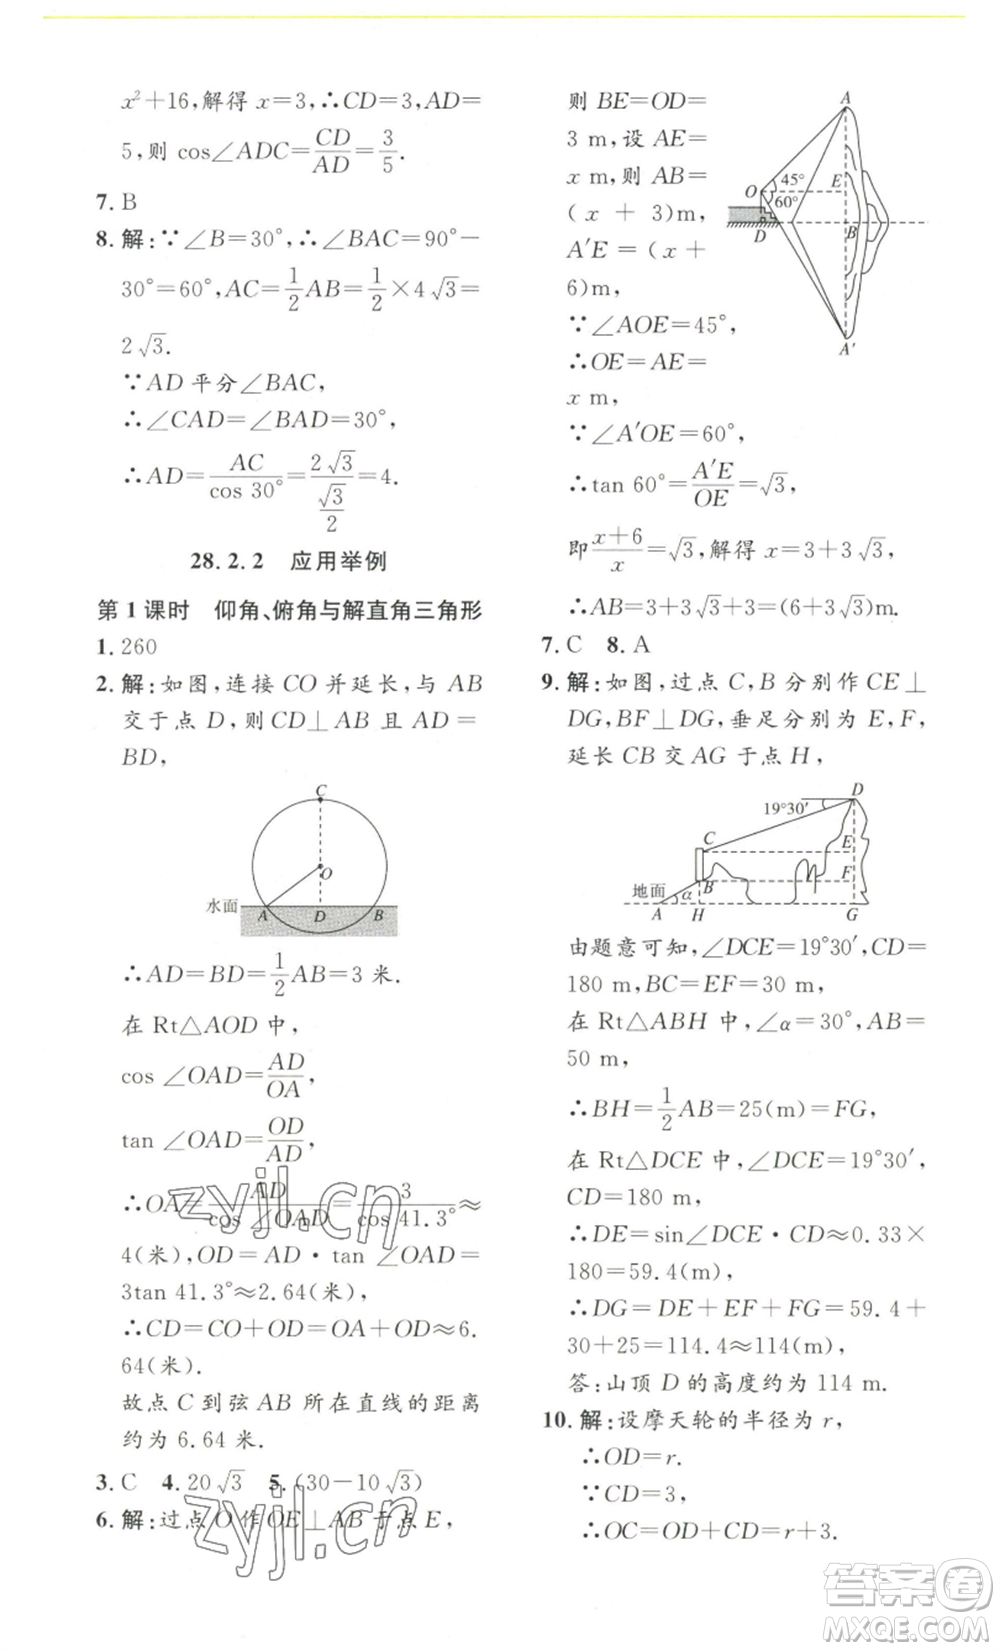 x²+16,解得 x=3,∴CD=3,AD=
5,则 cos∠ADC=CD/AD=3/5.
7. B
8. 解:∵∠B=30°,∴∠BAC=90°-
30°=60°,AC=1/2AB=1/2×4√3=
2√3.
∵AD 平分∠BAC,
∴∠CAD=∠BAD=30°,
∴AD=AC/cos 30°=2√3/(√3/2)=4.
28.2.2 应用举例
第1课时 仰角、俯角与解直角三角形
1. 260
2. 解:如图,连接 CO 并延长,与 AB
交于点 D,则 CD⊥AB 且 AD=
BD,
C
O
水面
A D B
∴AD=BD=1/2AB=3 米.
在 Rt△AOD 中,
cos ∠OAD=AD/OA,
tan ∠OAD=OD/AD,
∴OA=AD/cos ∠OAD=3/cos 41.3°≈
4(米),OD=AD·tan ∠OAD=
3tan 41.3°≈2.64(米).
∴CD=CO+OD=OA+OD≈6.
64(米).
故点 C 到弦 AB 所在直线的距离
约为 6.64 米.
3. C 4. 20√3 5. (30-10√3)
6. 解:过点 O 作 OE⊥AB 于点 E,
则 BE=OD=
3 m,设 AE=
x m,则 AB=
(x+3)m,
A′E=(x+
6)m,
∵∠AOE=45°,
∴OE=AE=
x m,
A
O 45° E
60°
D B
A′
∵∠A′OE=60°,
∴tan 60°=A′E/OE=√3,
即(x+6)/x=√3,解得 x=3+3√3,
∴AB=3+3√3+3=(6+3√3)m.
7. C 8. A
9. 解:如图,过点 C,B 分别作 CE⊥
DG,BF⊥DG,垂足分别为 E,F,
延长 CB 交 AG 于点 H,
19°30′ D
C E
B F
地面 α
A H G
由题意可知,∠DCE=19°30′,CD=
180 m,BC=EF=30 m,
在 Rt△ABH 中,∠α=30°,AB=
50 m,
∴BH=1/2AB=25(m)=FG,
在 Rt△DCE 中,∠DCE=19°30′,
CD=180 m,
∴DE=sin∠DCE·CD≈0.33×
180=59.4(m),
∴DG=DE+EF+FG=59.4+
30+25=114.4≈114(m).
答:山顶 D 的高度约为 114 m.
10. 解:设摩天轮的半径为 r,
∴OD=r.
∵CD=3,
∴OC=OD+CD=r+3.
zyjl.cn
zyjl.cn
答案卷
MXQE.COM